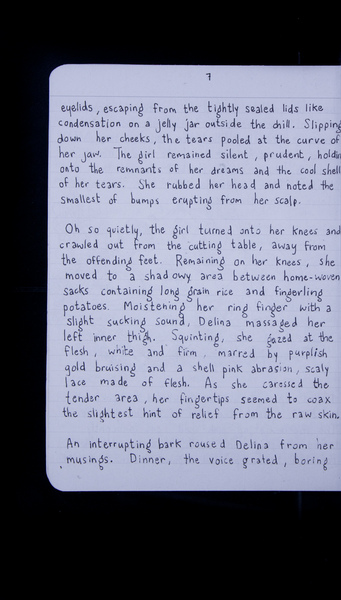 7
eyelids, escaping from the tightly sealed lids like
condensation on a jelly jar outside the chill. Slipping
down her cheeks, the tears pooled at the curve of
her jaw. The girl remained silent, prudent, holdin
onto the remnants of her dreams and the cool shell
of her tears. She rubbed her head and noted the
smallest of bumps erupting from her scalp.
Oh so quietly, the girl turned onto her knees and
crawled out from the cutting table, away from
the offending feet. Remaining on her knees, she
moved to a shadowy area between home-woven
sacks containing long grain rice and fingerling
potatoes. Moistening her ring finger with a
slight sucking sound, Delina massaged her
left inner thigh. Squinting, she gazed at the
flesh, white and firm, marred by purplish
gold bruising and a shell pink abrasion, scaly
lace made of flesh. As she caressed the
tender area, her fingertips seemed to coax
the slightest hint of relief from the raw skin.
An interrupting bark roused Delina from her
musings. Dinner, the voice grated, boring